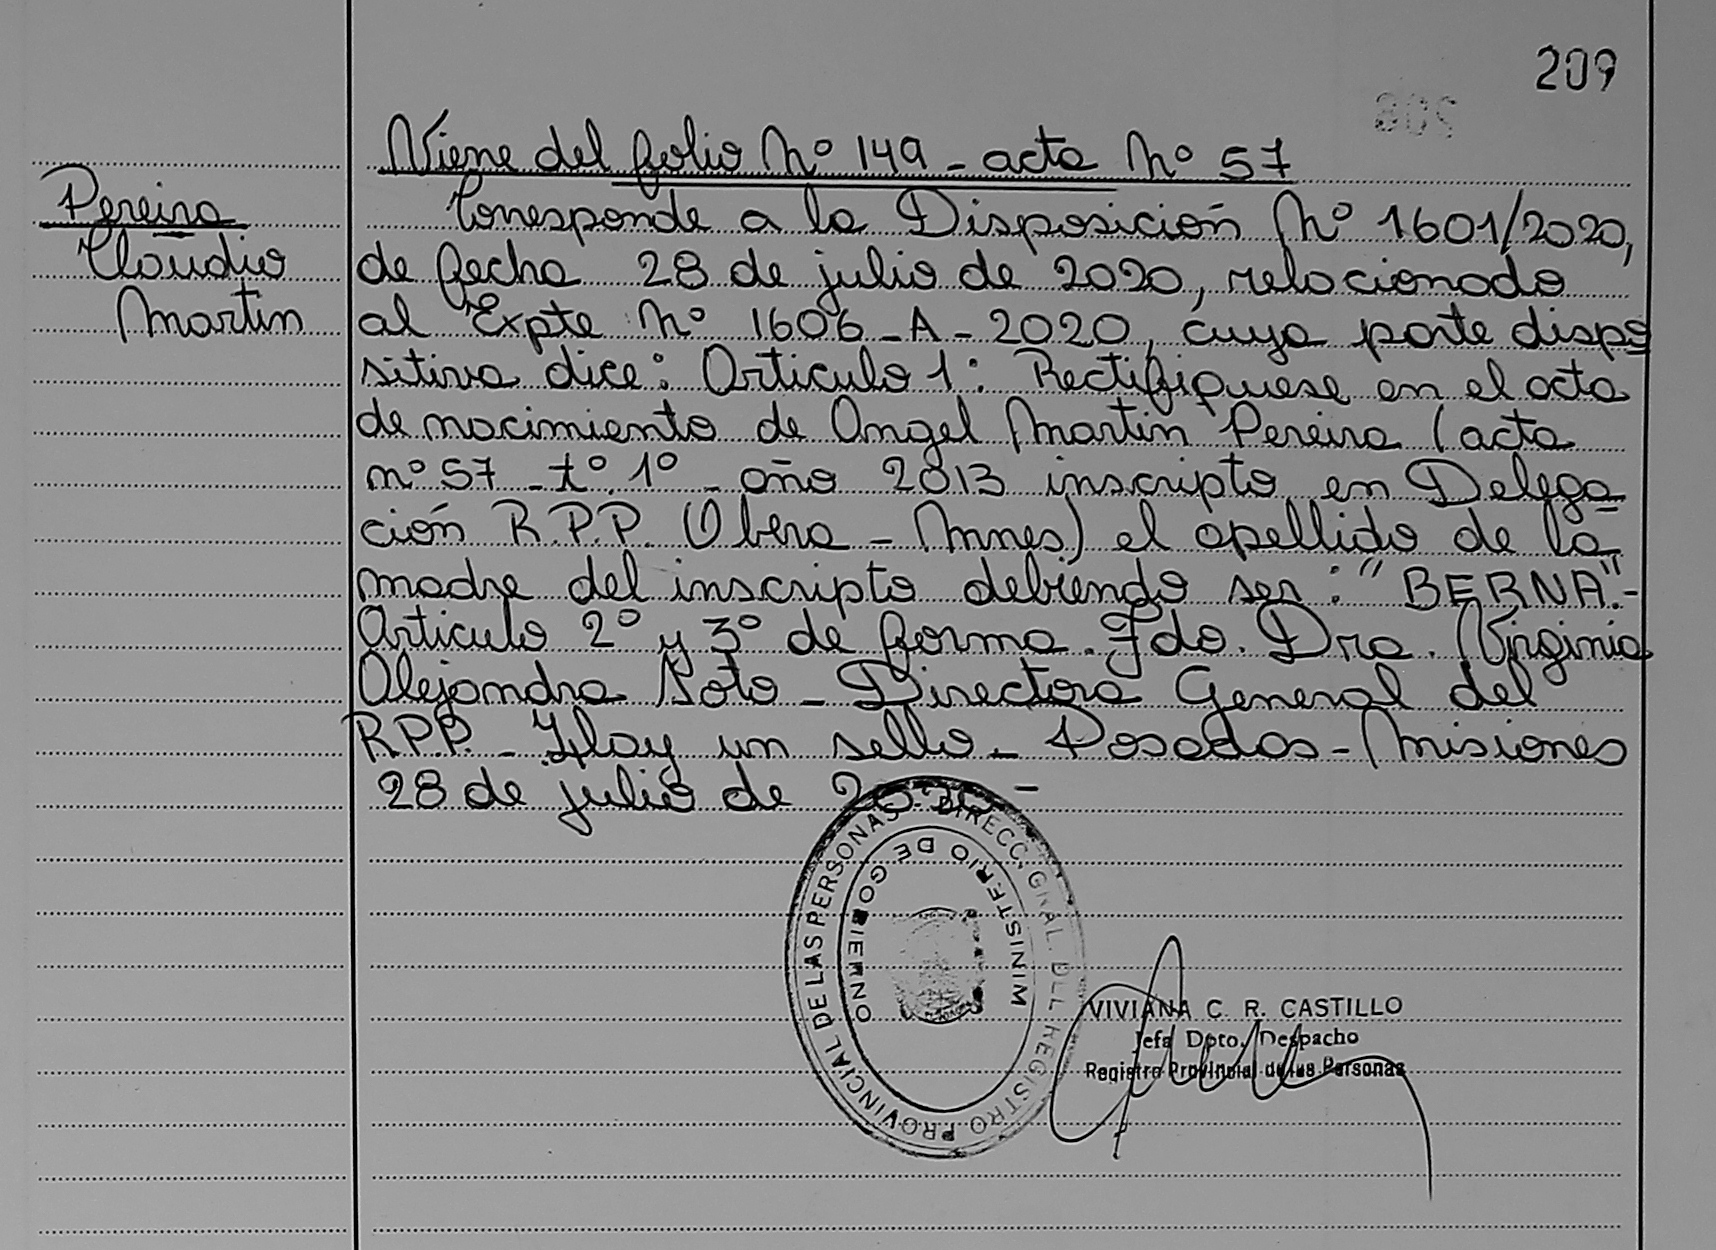 209
Viene del folio Nº 149 - acta Nº 57
Pereira
Claudio
Martin
Corresponde a la Disposición Nº 1601/2020,
de fecha 28 de julio de 2020, relacionado
al Expte Nº 1606-A-2020, cuya parte dispo
sitiva dice: Articulo 1: Rectifiquese en el acta
de nacimiento de Angel Martin Pereira (acta
nº 57 - tº 1º - año 2013 inscripto en Delega
ción R.P.P. Obera - Mnes) el apellido de la
madre del inscripto debiendo ser: "BERNA".-
Articulo 2º y 3º de forma. Fdo. Dra. Virginia
Alejandra Soto - Directora General del
R.P.P. - Hay un sello - Posadas - Misiones
28 de julio de 2020 -
DIRECC. GRAL. DEL REGISTRO PROVINCIAL DE LAS PERSONAS
MINISTERIO DE GOBIERNO
VIVIANA C. R. CASTILLO
Jefa Dpto. Despacho
Registro Provincial de las Personas